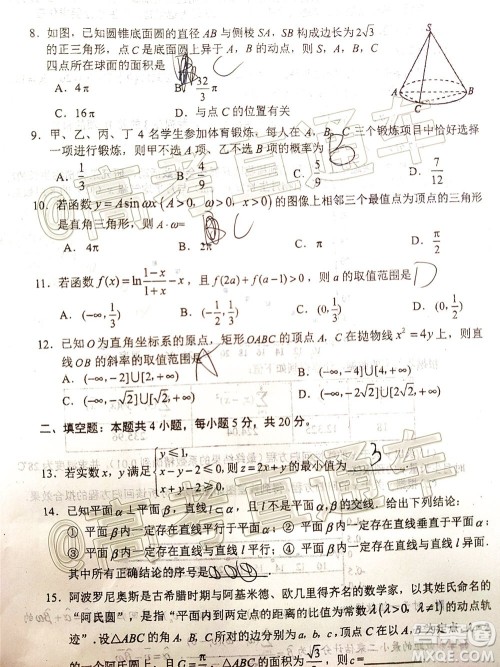 8. 如图，已知圆锥底面圆的直径 AB 与侧棱 SA，SB 构成边长为 2√3
的正三角形，点 C 是底面圆上异于 A，B 的动点，则 S，A，B，C
四点所在球面的面积是 B
A. 4π B. 32/3 π
C. 16π D. 与点 C 的位置有关
S
A B
C
9. 甲、乙、丙、丁 4 名学生参加体育锻炼，每人在 A，B，C 三个锻炼项目中恰好选择
一项进行锻炼，则甲不选 A、乙不选 B 的概率为 B
A. 1/3 B. 4/9 C. 5/9 D. 7/12
10. 若函数 y=Asinωx(A>0，ω>0，x>0)的图像上相邻三个最值点为顶点的三角形
是直角三角形，则 A·ω= C
A. 4π B. 2π C. π D. π/2
11. 若函数 f(x)=ln (1-x)/(1+x) -x，且 f(2a)+f(a-1)>0，则 a 的取值范围是 D
A. (-∞,1/3) B. (-1/2,1/3) C. (0,1/3) D. (0,1/2)
12. 已知 O 为直角坐标系的原点，矩形 OABC 的顶点 A，C 在抛物线 x²=4y 上，则直
线 OB 的斜率的取值范围是 A
A. (-∞,-2]∪[2,+∞) B. (-∞,-4]∪[4,+∞)
C. (-∞,-√2]∪[√2,+∞) D. (-∞,-2√2]∪[2√2,+∞)
二、填空题：本题共 4 小题，每小题 5 分，共 20 分。
13. 若实数 x，y 满足 {y≤1, x-y-2≤0, x+y-2≤0, 则 z=2x+y 的最小值为 3
14. 已知平面 α⊥平面 β，直线 l⊂α，且 l 不是平面 α，β 的交线。给出下列结论：
① 平面 β 内一定存在直线平行于平面 α；② 平面 β 内一定存在直线垂直于平面 α；
③ 平面 β 内一定存在直线与直线 l 平行；④ 平面 β 内一定存在直线与直线 l 异面.
其中所有正确结论的序号是
15. 阿波罗尼奥斯是古希腊时期与阿基米德、欧几里得齐名的数学家，以其姓氏命名的
“阿氏圆”，是指“平面内到两定点的距离的比值为常数 λ(λ>0,λ≠1)的动点轨
迹”，设△ABC 的角 A，B，C 所对的边分别为 a，b，c，顶点 C
@高考直通车
@高考直通车